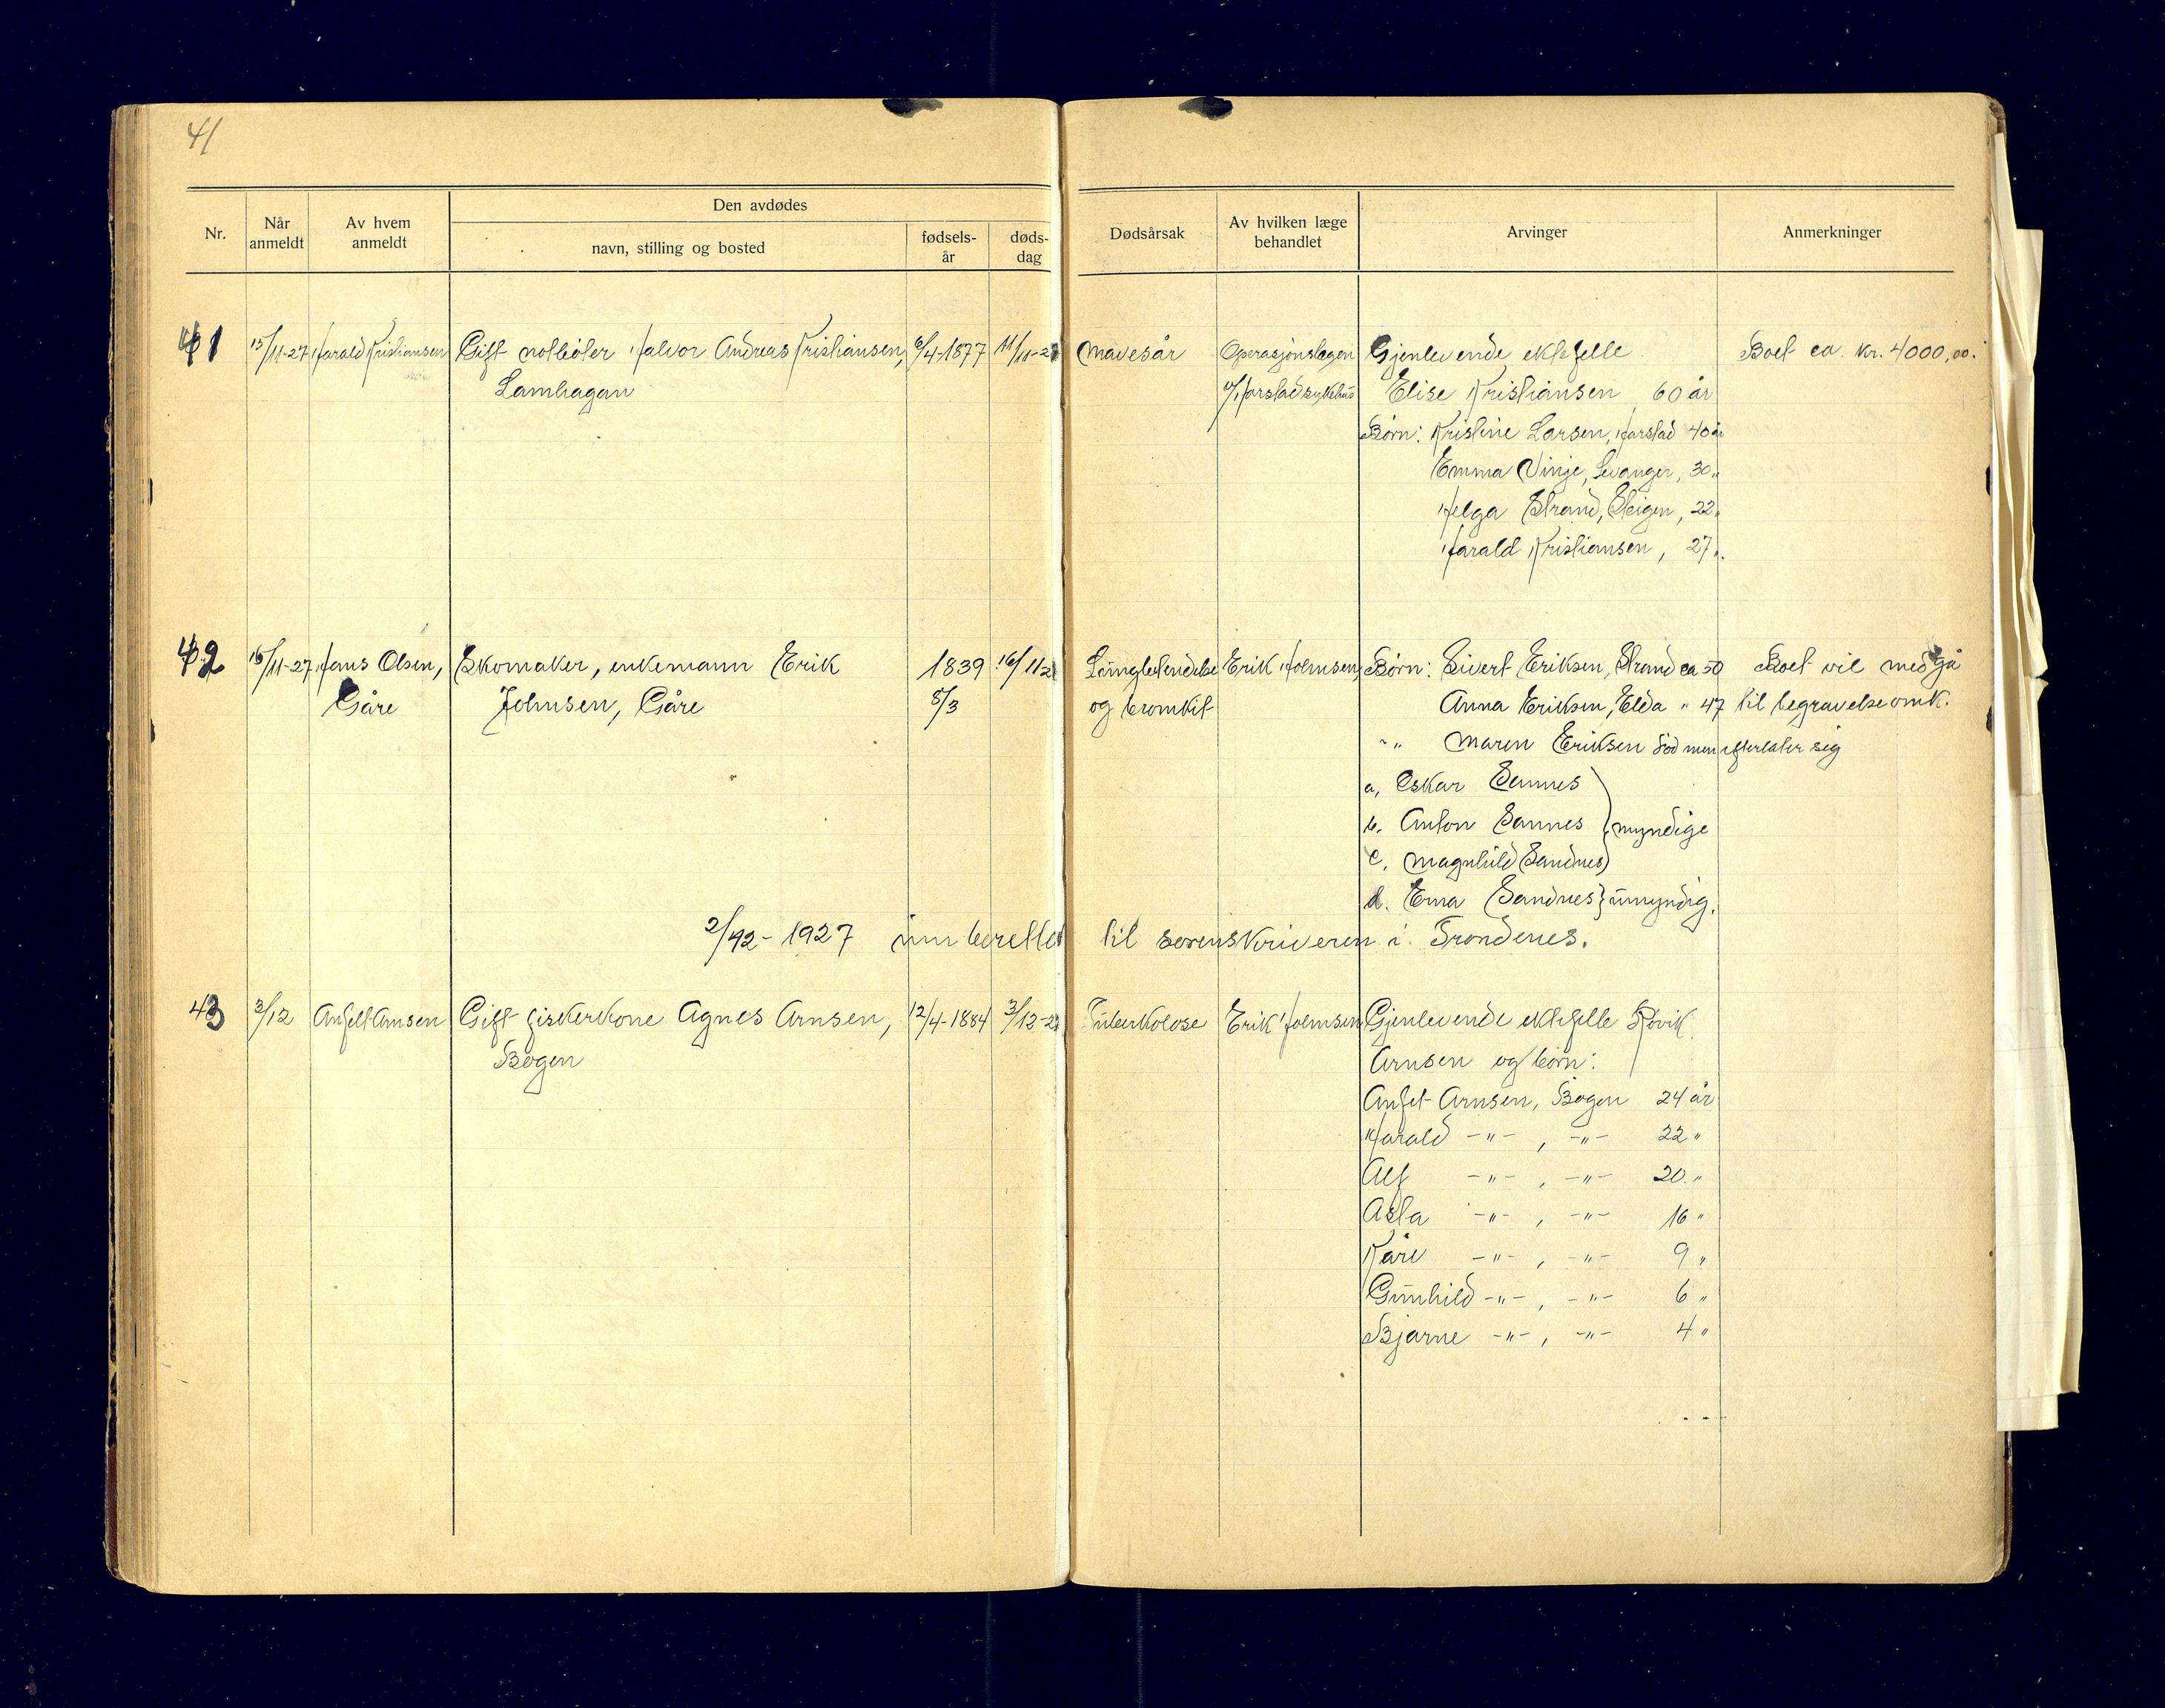 41
Nr.
Når anmeldt
Av hvem anmeldt
Den avdødes
navn, stilling og bosted
fødsels-år
døds-dag
Dødsårsak
Av hvilken læge behandlet
Arvinger
Anmerkninger
41 15/11-27 Harald Kristiansen Gift notbøter Halvor Andreas Kristiansen, 6/4-1877 11/11-27 Mavesår Operasjonslægen Gjenlevende ektefelle Boet ca. kr. 4000,00.
Lamhagan v/Harstad sykehus Elise Kristiansen 60 år
Børn: Kristine Larsen, Harstad 40 år
Emma Vinje, Levanger, 30 "
Helga Strand, Steigen, 22 "
Harald Kristiansen, 27 "
42 16/11-27 Hans Olsen, Skomaker, enkemann Erik 1839 16/11 2 Lungebetendelse Erik Holmsen Børn: Sivert Eriksen, Strand ca 50 Boet vil medgå
Gåre Johnsen, Gåre 8/3 og bronkit Anna Eriksen, Elda " 47 til begravelseomk.
-"- Maren Eriksen død men efterlater sig
a, Oskar Sannes
b. Anton Sannes } myndige
c. Magnhild Sandnes
d. Erna Sandnes } umyndig.
2/12-1927 innberettet til sorenskriveren i Trondenes.
43 3/12 Anfelt Arnsen Gift fiskerkone Agnes Arnsen, 12/4-1884 3/12-27 Tuberkolose Erik Holmsen Gjenlevende ektefelle Rovik
Bogen Arnsen og børn:
Anfet Arnsen, Bogen 24 år
Harald -"- , -"- 22 "
Alf -"- , -"- 20 "
Asta -"- , -"- 16 "
Kåre -"- , -"- 9 "
Gunhild -"- , -"- 6 "
Bjarne -"- , -"- 4 "